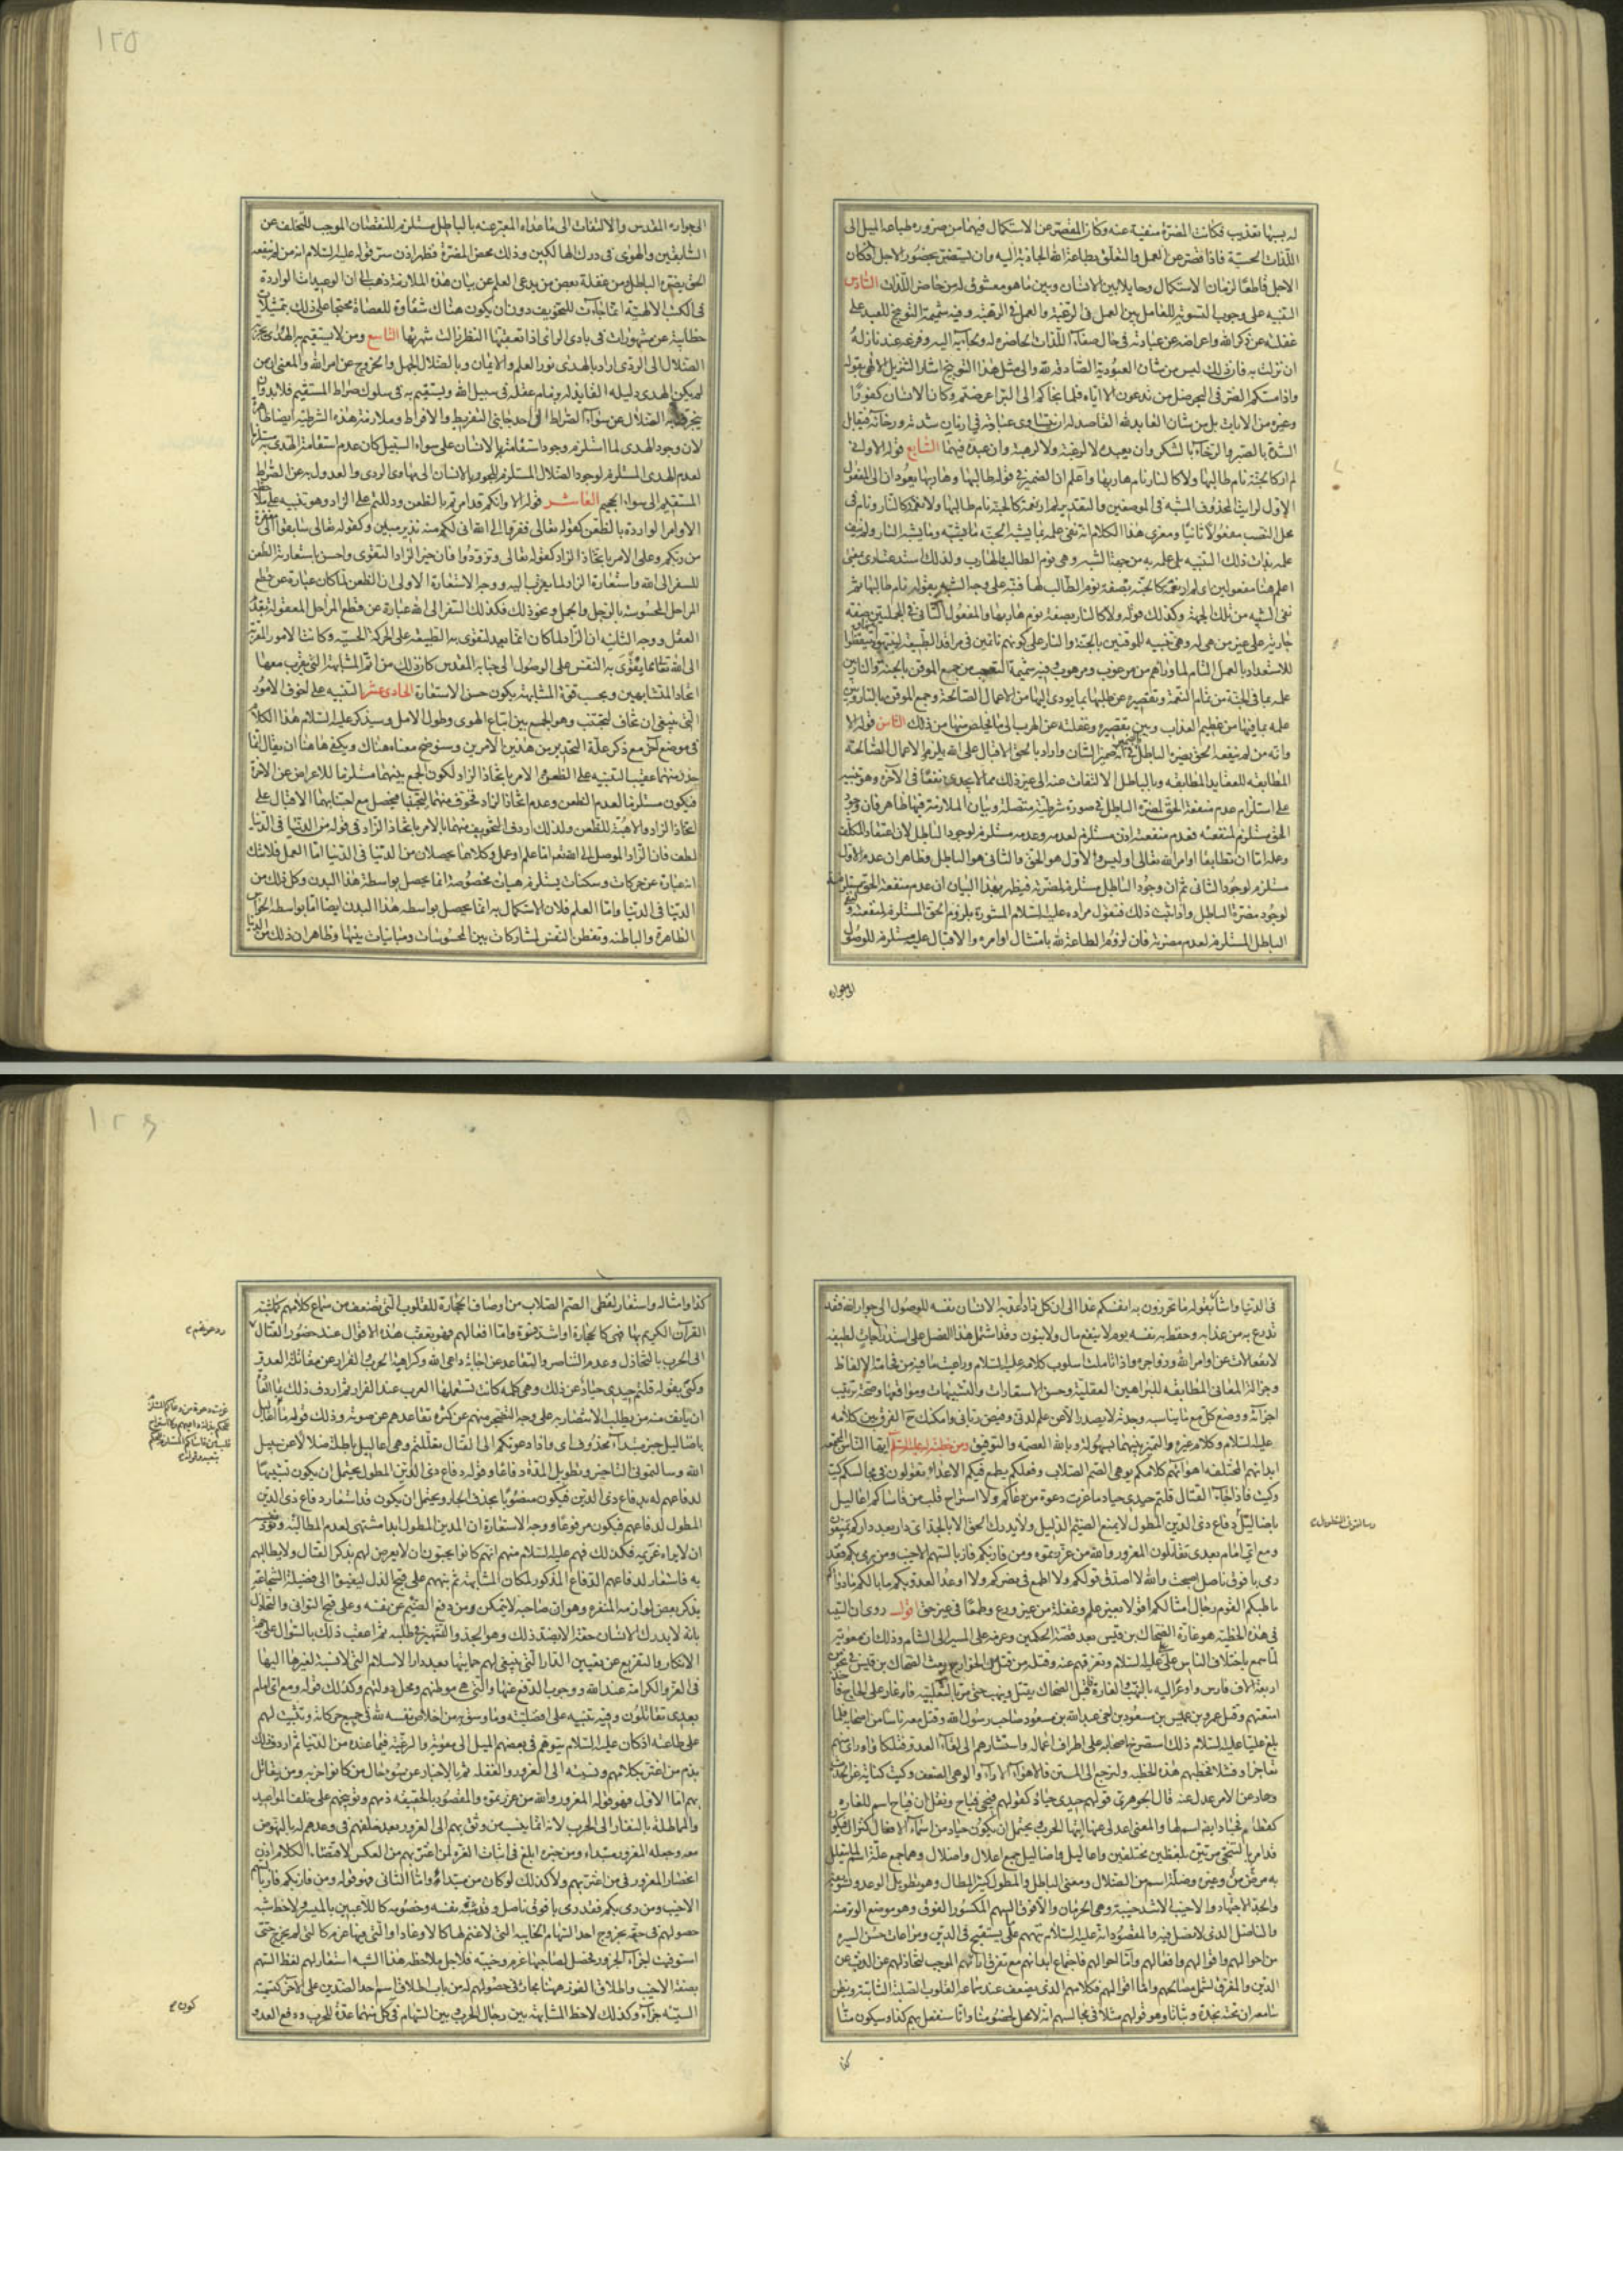 له بسببها تعذيب فكانت المضرة منفية عنه وكان المقصر عن الاستكمال فيهما من ضرورة طباعه الميل الى
اللذات الحسية فاذا قصر عن العمل والتعلق بطاعة الله الجاذبة اليه وان لم يستضر بحضور الاجل لكان
الاجل قاطعا لزمان الاستكمال وحايلا بين الانسان وبين ما هو معشوق له من حاضر اللذات السادس
التنبيه على وجوب التسوية للعامل بين العمل في الرغبة والعمل في الرهبة وفيه شميمة التوبيخ للعبد على
غفلته عن ذكر الله واعراضه عن عبادته في حال صفاء اللذات الحاضرة له ونجاته اليه وفزعه عند نازلة
ان نزلت به فان ذلك ليس من شان العبودية الصادقة لله والى مثل هذا التوبيخ اشار التنزيل الالهي بقوله
واذا مسكم الضر في البحر ضل من تدعون الا اياه فلما نجاكم الى البر اعرضتم وكان الانسان كفورا
وغيره من الايات بل من شان العابد لله القاصد له ان يتساوى عبادته في ازمان شدته ورخائه فيقابل
الشدة بالصبر والرخاء بالشكر وان يعبده لا لرغبة ولا لرهبة وان عبده فيهما السابع قوله الا واني
لم ار كالجنة نام طالبها ولا كالنار نام هاربها واعلم ان الضمير في قوله طالبها وهاربها يعودان الى المفعول
الاول لرايت المحذوف المشبه في الموضعين والتقدير لم ار نعمة كالجنة نام طالبها ولا نقمة كالنار ونام في
محل النصب مفعولا ثانيا ومغزى هذا الكلام انه نفى علمه بما يشبه الجنة وما يشبه النار ولم ينف
علمه بذات ذلك الشبيه بل علمه به من جهة الشبه وهي نوم الطالب والهارب ولذلك استدعى ارى بمعنى
اعلم هنا مفعولين اي لم ار نعمة كالجنة بصفة نوم الطالب لها فنبه على وجه الشبه بقوله نام طالبها ثم
نفى الشبيه من تلك الجهة وكذلك قوله ولا كالنار بصفة نوم هاربها والمفعول الثاني في الجملتين صفة
جارية على غير من هي له وهي تنبيه للموقنين بالجنة والنار على كونهم نائمين في مراقد الطبيعة
للاستعداد بالعمل التام لما وراهم من مرغوب ومرهوب وفيه شميمة التعجب من جمع الموقن بالجنة والنار بين
علمه بما في الجنة من تمام النعمة وتقصيره عن طلبها بما يودي اليها من الاعمال الصالحة وجمع الموقن بالنار بين
علمه بما فيها من عظيم العذاب وبين تقصيره وغفلته عن الهرب الى ما يخلص منها من ذلك الثامن قوله الا
وانه من لم ينفعه الحق يضره الباطل الضمير في انه ضمير الشان واراد بالحق الاقبال على الله بلزوم الاعمال الصالحة
المطابقة للعقايد المطابقة وبالباطل الالتفات عنه الى غير ذلك مما لا يجدي نفعا في الاخرة وهو تنبيه
على استلزام عدم منفعة الحق لمضرة الباطل في صورة شرطية متصلة وبيان الملازمة فيها ظاهر فان وجود
الحق مستلزم لمنفعته فعدم منفعته اذن مستلزم لعدمه وعدمه مستلزم لوجود الباطل لان اعتقاد المكلف
وعمله اما ان يطابقا اوامر الله تعالى او ليس والاول هو الحق والثاني هو الباطل وظاهر ان عدم الاول
مستلزم لوجود الثاني ثم ان وجود الباطل مستلزم لمضرته فيظهر بهذا البيان ان عدم منفعة الحق مستلزمة
لوجود مضرة الباطل واذا ثبت ذلك فنقول مراده عليه السلام المشورة بلزوم الحق المستلزم لمنفعته ونفي
الباطل المستلزم لعدم مضرته فان لزوم الطاعة لله بامتثال اوامره والاقبال عليه مستلزم للوصول
الى جواره
١٢٥
الى جواره المقدس والالتفات الى ما عداه المعبر عنه بالباطل مستلزم للنقصان الموجب للتخلف عن
السابقين والهوى في درك الهالكين وذلك محض المضرة فظهر اذن سر قوله عليه السلام انه من لم ينفعه
الحق يضره الباطل ومن غفلة بعض من يدعي العلم عن بيان هذه الملازمة ذهب الى ان الوعيدات الواردة
في الكتب الالهية انما جاءت للتخويف دون ان يكون هناك شقاوة للعصاة محتجا على ذلك بتمثيلات
خطابية عن مشهورات في بادي الراي اذا تعقبها النظر زالت شهرتها التاسع ومن لا يستقيم به الهدى يجر به
الضلال الى الردى اراد بالهدى نور العلم والايمان وبالضلال الجهل والخروج عن امر الله والمعنى ان من
لم يكن الهدى دليله القايد له بزمام عقله في سبيل الله ويستقيم به في سلوك صراط المستقيم فلا بد وان
ينحرف به الضلال عن سواء الصراط الى احد جانبي التفريط والافراط وملازمة هذه الشرطية ايضا ظاهرة
لان وجود الهدى لما استلزم وجود استقامة الانسان على سواء السبيل كان عدم استقامة الهدى به مستلزما
لعدم الهدى المستلزم لوجود الضلال المستلزم للجور بالانسان الى مهاوي الردى والعدول به عن الصراط
المستقيم الى سواء الجحيم العاشر قوله الا وانكم قد امرتم بالظعن ودللتم على الزاد وهو تنبيه على ملاحظة
الاوامر الواردة بالظعن كقوله تعالى ففروا الى الله اني لكم منه نذير مبين وكقوله تعالى سابقوا الى مغفرة
من ربكم وعلى الامر باتخاذ الزاد كقوله تعالى وتزودوا فان خير الزاد التقوى واحسن باستعارة الظعن
للسفر الى الله واستعارة الزاد لما يقرب اليه ووجه الاستعارة الاولى ان الظعن لما كان عبارة عن قطع
المراحل المحسوسة بالرجل والجمل ونحو ذلك فكذلك السفر الى الله عبارة عن قطع المراحل المعقولة بقدم
العقل ووجه الثانية ان الزاد لما كان انما يعد لتقوى به الطبيعة على الحركة الحسية وكانت الامور المقربة
الى الله تعالى مما يقوى به النفس على الوصول الى جنابه المقدس كان ذلك من اتم المشابهة التي يقرب معها
اتحاد المتشابهين وبحسب قوة المشابهة يكون حسن الاستعارة الحادي عشر التنبيه على اخوف الامور
التي ينبغي ان تخاف لتجتنب وهو الجمع بين اتباع الهوى وطول الامل وسيذكر عليه السلام هذا الكلام
في موضع آخر مع ذكر علة التحذير من هذين الامرين وسنوضح معناه هناك ويكفي هاهنا ان يقال انما
حذر منهما عقيب التنبيه على الظعن والامر باتخاذ الزاد لكون الجمع بينهما مستلزما للاعراض عن الاخرة
فيكون مستلزما لعدم الظعن وعدم اتخاذ الزاد فخوف منهما ليجتنبا فيحصل مع اجتنابهما الاقبال على
اتخاذ الزاد والاهبة للظعن ولذلك اردف التخويف منهما بالامر باتخاذ الزاد في قوله من الدنيا في الدنيا
لطف فان الزاد الموصل الى الله تعالى اما علم او عمل وكلاهما يحصلان من الدنيا في الدنيا اما العمل فلا شك
انه عبارة عن حركات وسكنات يستلزم هيات مخصوصة انما يحصل بواسطة هذا البدن وكل ذلك من
الدنيا في الدنيا واما العلم فلان الاستكمال به انما يحصل بواسطة هذا البدن ايضا اما بواسطة الحواس
الظاهرة والباطنة وتفطن النفس لمشاركات بين المحسوسات ومباينات بينها وظاهر ان ذلك من الدنيا
في الدنيا واشار بقوله ما تحرزون به انفسكم غدا الى ان كل زاد اعد به الانسان نفسه للوصول الى جوار الله فقد
تدرع به من عذابه وحفظ به نفسه يوم لا ينفع مال ولا بنون وقد اشتمل هذا الفصل على استدراجات لطيفة
لانفعالات عن اوامر الله وزواجره واذا تاملت اسلوب كلامه عليه السلام وراعيت ما فيه من فخامة الالفاظ
وجزالة المعاني المطابقة للبراهين العقلية وحسن الاستعارات والتشبيهات ومواقعها وصحة ترتيب
اجزائه ووضع كل مع ما يناسبه وجدته لا يصدر الا عن علم لدني وفيض رباني وامكنك ح الفرق بين كلامه
عليه السلام وكلام غيره والتمييز بينهما بسهولة وبالله العصمة والتوفيق ومن خطبة له عليه السلم ايها الناس المجتمعة
ابدانهم المختلفة اهواؤهم كلامكم يوهي الصم الصلاب وفعلكم يطمع فيكم الاعداء تقولون في مجالسكم كيت
وكيت فاذا جاء القتال قلتم حيدي حياد ما عزت دعوة من دعاكم ولا استراح قلب من قاساكم اعاليل
باضاليل دفاع ذي الدين المطول لا يمنع الضيم الذليل ولا يدرك الحق الا بالجد اي دار بعد داركم تمنعون
ومع اي امام بعدي تقاتلون المغرور والله من غررتموه ومن فاز بكم فاز بالسهم الاخيب ومن رمى بكم فقد
رمى بافوق ناصل اصبحت والله لا اصدق قولكم ولا اطمع في نصركم ولا اوعد العدو بكم ما بالكم ما دواؤكم
ما طبكم القوم رجال امثالكم اقولا بغير علم وغفلة من غير ورع وطمعا في غير حق اقول روى ان السبب
في هذه الخطبة هو غارة الضحاك بن قيس بعد قصة الحكمين وعزمه على المسير الى الشام وذلك ان معوية
لما سمع باختلاف الناس على عليه السلام وتفرقهم عنه وقتله من قتل من الخوارج بعث الضحاك بن قيس في نحو من
اربعة الاف فارس واوعز اليه بالنهب والغارة فاقبل الضحاك يقتل وينهب حتى مر بالثعلبية فاغار على الحاج فاخذ
امتعتهم وقتل عمرو بن عميس بن مسعود بن اخي عبد الله بن مسعود صاحب رسول الله وقتل معه ناسا من اصحابه فلما
بلغ عليا عليه السلام ذلك استصرخ اصحابه على اطراف اعماله واستشارهم الى لقاء العدو فتلكاوا وراى منهم
تعاجزا وفشلا فخطبهم هذه الخطبة ولنرجع الى المتن فالاهواء الاراء والوهي الضعف وكيت كناية عن الحديث
وحاد عن الامر عدل عنه قال الجوهري قولهم حيدي حياد كقولهم فيحي فياح ونقل ان فياح اسم للغارة
كقطام فحياد ايضا اسم لها والمعنى اعدلي عنا ايتها الحرب ويحتمل ان يكون حياد من اسماء الافعال كنزال فيكون
قد امر بالتنحي مرتين بلفظين مختلفين واعاليل واضاليل جمع اعلال واضلال وهما جمع علة اسم لما يتعلل
به من مرض وغيره وضلة اسم من الضلال ومعنى الباطل والمطول كثير المطال وهو تطويل الوعد وتسويفه
والجد الاجتهاد والاخيب الاشد خيبة وهي الحرمان والافوق السهم المكسور الفوق وهو موضع الوتر منه
والناصل الذي لا نصل فيه والمقصود انه عليه السلام نبههم على ما يستقبح في الدين ومراعاة حسن السيرة
من احوالهم واقوالهم وافعالهم واما احوالهم فاجتماع ابدانهم مع تفرق ارائهم الموجب لتخاذلهم عن الذب عن
الدين والمفرق لشمل مصالحهم واما اقوالهم فكلامهم الذي يضعف عند سماعه القلوب الصلبة الثابتة ويظن
سامعه ان تحته نجدة وثباتا وهو قولهم مثلا في مجالسهم انه لا محل لخصومنا وانا سنفعل بهم كذا وسيكون منا
كذا
١٢٦
كذا وامثاله واستعار لفظي الصم الصلاب من اوصاف الحجارة للقلوب التي تضعف من سماع كلامهم كما شبه
القرآن الكريم بها فهي كالحجارة او اشد قسوة واما افعالهم فهو تعقب هذه الاقوال عند حضور القتال
الى الحرب بالتخاذل وعدم التناصر والتقاعد عن اجابة داعي الله وكراهية الحرب والفرار عن مقاتلة العدو
وكنى بقوله قلتم حيدي حياد عن ذلك وهي كلمة كانت تستعملها العرب عند الفرار ثم اردف ذلك بما الفا
ان يانف منه من يطلب الانتصار به على وجه التضجر منهم عن كثرة تقاعدهم عن صوته وذلك قوله اعاليل
باضاليل خبر مبتداء محذوف اي واذا دعوتكم الى القتال تعللتم وهي اعاليل باطلة ضلالا عن سبيل
الله وسالتموني التاخير وتطويل المدة دفاعا وقوله دفاع ذي الدين المطول يحتمل ان يكون تشبيها
لدفاعهم له بدفاع ذي الدين فيكون منصوبا بحذف الجار ويحتمل ان يكون قد استعار دفاع ذي الدين
المطول لدفاعهم فيكون مرفوعا ووجه الاستعارة ان المدين المطول ابدا مشتهى لعدم المطالبة وتود نفسه
ان لا يراه غريمه فكذلك فهم عليه السلام منهم انهم كانوا يحبون ان لا يعرض لهم بذكر القتال ولا يطالبهم
به فاستعار لدفاعهم الدفاع المذكور لمكان المشابهة ثم نبههم على قبح الذل ليفيئوا الى فضيلة الشجاعة
بذكر بعض لوازمه المنفرة وهو ان صاحبه لا يتمكن من دفع الضيم عن نفسه وعلى قبح التواني والتخاذل
بانه لا يدرك الانسان حقه الا بضد ذلك وهو الجد والتشمير في طلبه ثم اعقب ذلك بالسؤال على جهة
الانكار والتقريع عن تعيين الدار التي ينبغي لهم حمايتها بعد دار الاسلام التي لا نسبة لغيرها اليها
في العز والكرامة عند الله ووجوب الدفع عنها والتي هي موطنهم ومحل دولتهم وكذلك قوله ومع اي امام
بعدي تقاتلون وفيه تنبيه على افضليته وما وثق به من اخلاص نفسه لله في جميع حركاته وتثبيت لهم
على طاعته اذ كان عليه السلام يتوهم في بعضهم الميل الى معوية والرغبة فيما عنده من الدنيا ثم اردف ذلك
بذم من اغتر بكلامهم ونسبه الى الغرور والغفلة ثم بالاخبار عن سوء حال من كانوا حزبه ومن يقاتل
بهم اما الاول فهو قوله المغرور والله من غررتموه والمقصود بالحقيقة ذمهم وتوبيخهم على خلف المواعيد
والمماطلة بالنفار الى الحرب لانه انما ينسب من وثق بهم الى الغرور بعد خلفهم في وعدهم له بالنهوض
معه وجعله المغرور مبتداء ومن خبره ابلغ في اثبات الغرة لمن اغتر بهم من العكس لاقتضاء الكلام اذن
انحصار المغرور في من اغتر بهم ولا كذلك لو كان من مبتداء واما الثاني فهو قوله ومن فاز بكم فاز بالسهم
الاخيب ومن رمى بكم فقد رمى بافوق ناصل وقد شبه نفسه وخصومه كاللاعبين بالميسر ولاحظ شبه
حصولهم في حقه بخروج احد السهام الخايبة التي لا غنم لها كالاوغاد او التي فيها غرم كالتي لم يخرج حتى
استوفيت اجزاء الجزور فحصل لصاحبها غرم وخيبة فلاجل ملاحظة هذا الشبه استعار لهم لفظ السهم
بصفة الاخيب واطلاق الفوز همنا مجاز في حصولهم له من باب اطلاق اسم احد الضدين على الاخر كتسمية
السيئة جزاء وكذلك لاحظ المشابهة بين رجال الحرب وبين السهام في كل منهما عدة للحرب ودفع العدو